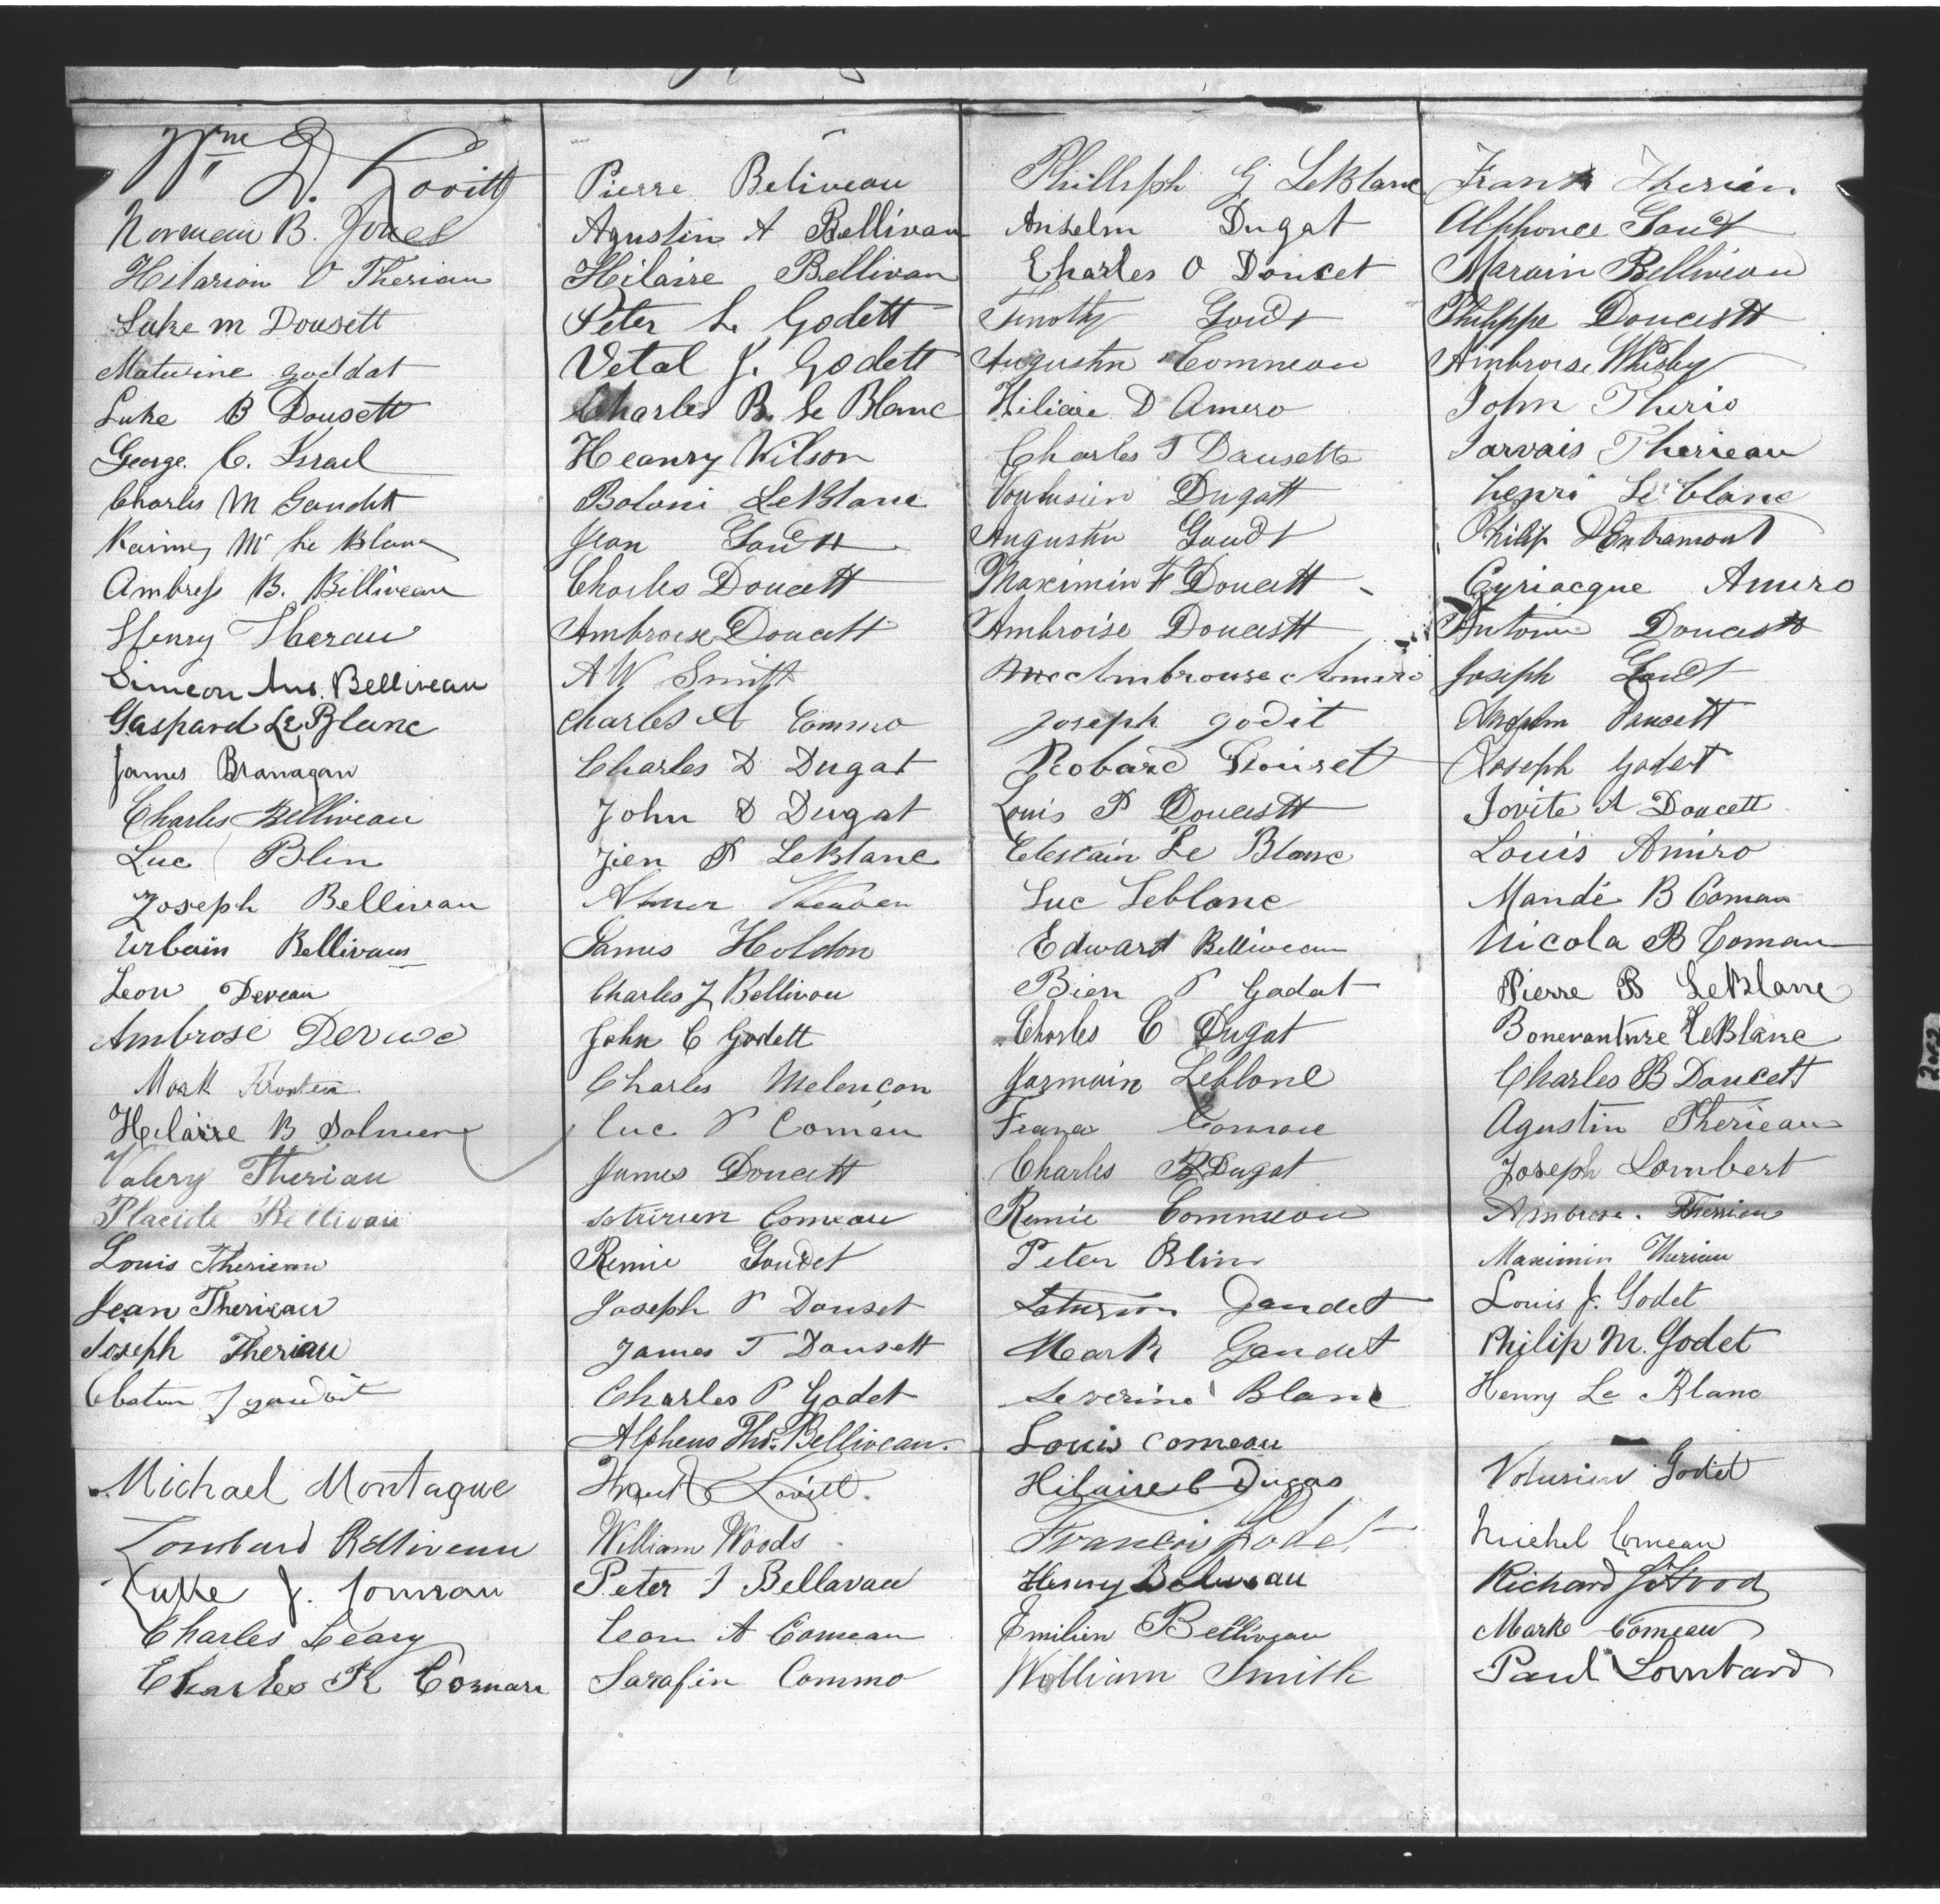 Wm D. Lovitt
Norman B. Jones
Hilarion O Theriau
Luke m Dousett
Maturine goddat
Luke B Dousett
George. C. Israel
Charles M Gaudett
Raimey M Le Blanc
Ambress B. Belliveau
Henry Therau
Simeon Aus. Belliveau
Gaspard Le Blanc
James Branagan
Charles Belliveau
Luc Blin
Joseph Bellivau
Urbain Bellivaus
Leon Deveau
Ambrose Devuce
Mark
Hilaire B Solmen
Valery Theriau
Placide Bellivau
Louis Therieau
Jean Therieau
Joseph Theriau
Michael Montague
Lombard Belliveau
Luke J. Comeau
Charles Leary
Charles R Comeau
Pierre Beliveau
Agustin A Bellivau
Hilaire Bellivau
Peter L. Godett
Vetal J. Godett
Charles B. Le Blanc
Heanry Wilson
Boloni LeBlanc
Jean Goudtt
Charles Doucett
Ambroise Doucett
A W Smith
Charles A Commo
Charles D Dugat
John D Dugat
Jien P LeBlanc
James Holdon
Charles J Bellivou
John C Godett
Charles Melençon
Luc P Comau
James Doucett
Comeau
Remie Goudet
Joseph P Douset
James T Dousett
Charles P Godet
Alpheus Tho. Belliveau.
Lovitt.
William Woods
Peter J Bellavau
Leon A Comeau
Sarafin Commo
Philliph G LeBlanc
Anselm Dugat
Charles O Doucet
Timothy Goudt
Augustin Commeau
Hiliare D Amero
Charles T Dausette
Voulusien Dugatt
Augustin Goudt
Maximin F Doucett
Ambroise Doucett
Ambrouse Amiro
Joseph godit
Robard Douset
Louis P Doucett
Celestain Le Blanc
Luc Leblanc
Edward Belliveau
Bien P Godat
Charles C Dugat
Jarmain Leblanc
Comoue
Charles B Dugat
Remie Commeau
Peter Blin
Saturnin Gaudet
Mark Gaudet
Severine Blanc
Louis comeau
Hilaire C Dugas
Francis Godet
Henry Beliveau
Emilien Belliveau
William Smith
Frank Therien
Alphonce Goudt
Marain Belliveau
Philippe Doucett
Ambroise Whisby
John Therio
Jarvais Therieau
henri Le blanc
Philip D'Entramont
Cyriacque Amiro
Antoine Doucett
Joseph Goudt
Anselm Doucett
Joseph Godet
Jovite A Doucett
Louis Amiro
Mandé B Comau
Nicola B Comau
Pierre B LeBlanc
Bonevanture LeBlanc
Charles B Doucett
Agustin Therieau
Joseph Lombert
Ambrose. Therrien
Maximin Theriau
Louis J. Godet
Philip M. Godet
Henry Le Blanc
Volusien Godet
Michel Comeau
Richard Hood
Mark Comeau
Paul Lombard